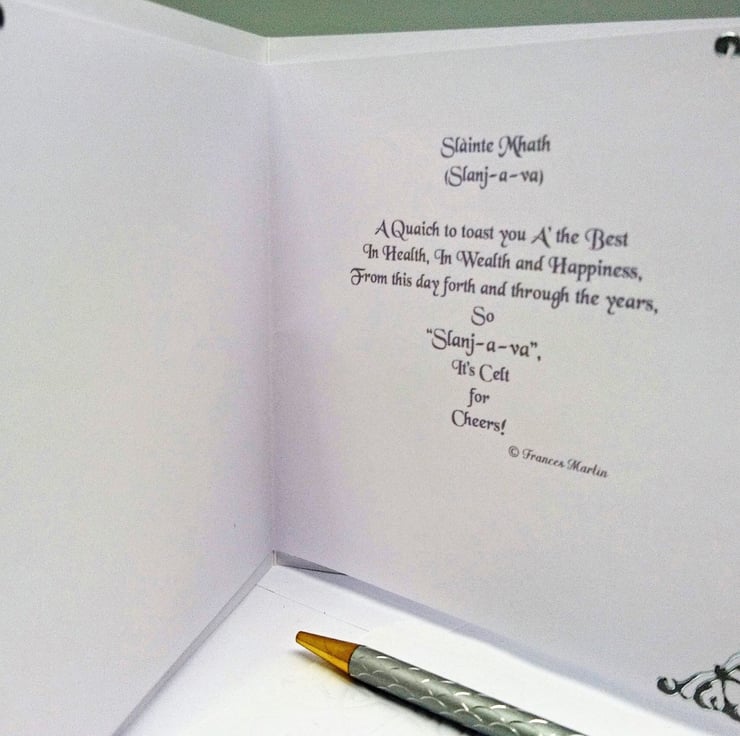 Slàinte Mhath
(Slanj-a-va)
A Quaich to toast you A' the Best
In Health, In Wealth and Happiness,
From this day forth and through the years,
So
“Slanj-a-va”,
It's Celt
for
Cheers!
© Frances Martin